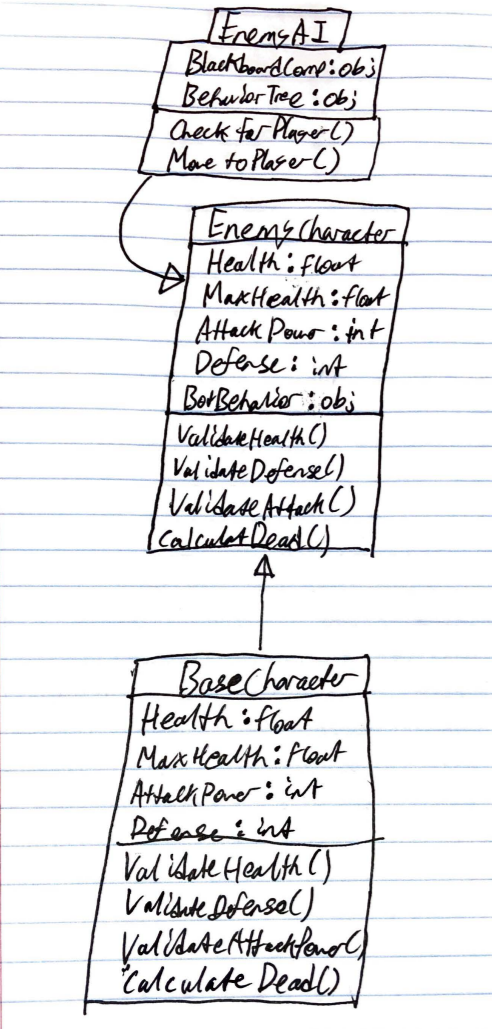 EnemyAI
BlackboardComp:obj
BehaviorTree:obj
Check for Player()
Move to Player()
EnemyCharacter
Health:float
MaxHealth:float
Attack Power:int
Defense:int
BotBehavior:obj
ValidateHealth()
ValidateDefense()
ValidateAttack()
CalculatDead()
BaseCharacter
Health:float
MaxHealth:float
AttackPower:int
Defense:int
ValidateHealth()
ValidateDefense()
ValidateAttackPower()
Calculate Dead()